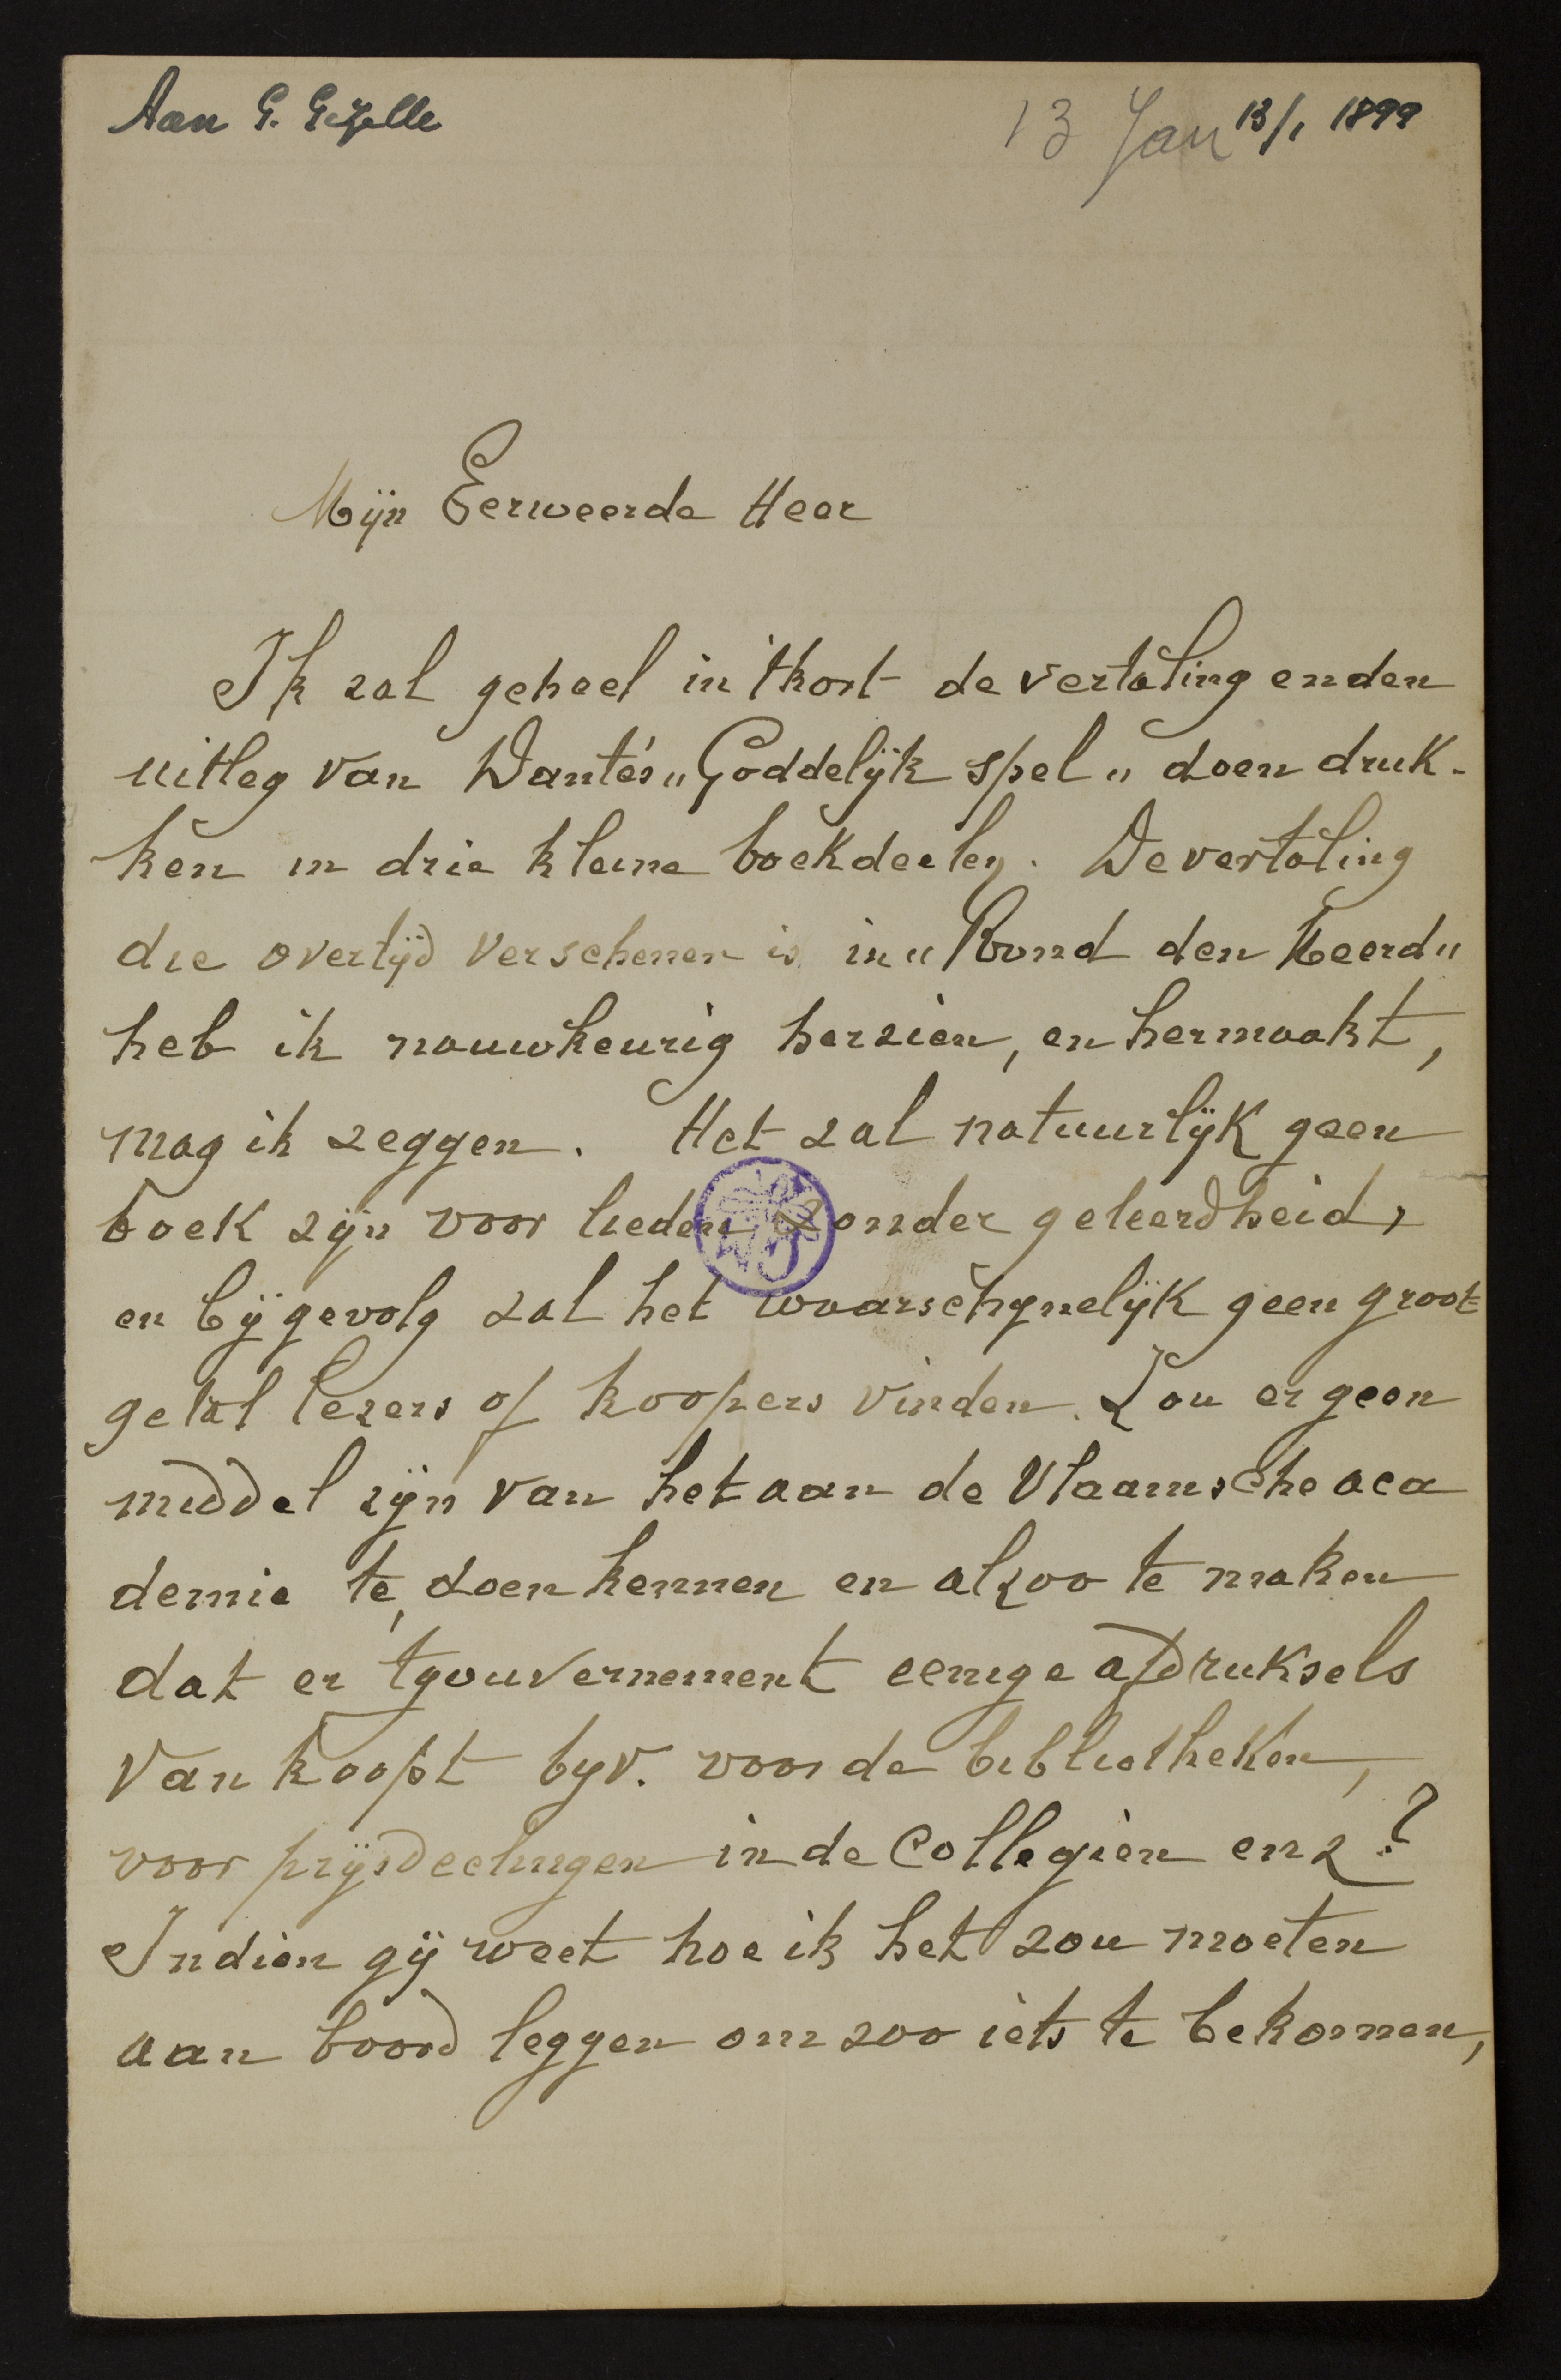 Aan G. Gezelle
13 Jan 13/1 1899
Mijn Eerweerde Heer
Ik zal geheel in 't kort de vertaling en den
uitleg van Dante's "Goddelijk spel" doen druk-
ken in drie kleine boekdeelen. De vertaling
die overtijd verschenen is in "Rond den Heerd"
heb ik nauwkeurig herzien, en hermaakt,
mag ik zeggen. Het zal natuurlijk geen
boek zijn voor lieden zonder geleerdheid,
en bijgevolg zal het waarschynelijk geen groot
getal lezers of koopers vinden. Zou er geen
middel zijn van het aan de Vlaamsche aca
demie te doen kennen en alzoo te maken
dat er tgouvernement eenige afdruksels
van koopt byv. voor de bibliotheken,
voor prijsdeelingen in de Collegien enz?
Indien gij weet hoe ik het zou moeten
aan boord leggen om zoo iets te bekomen,